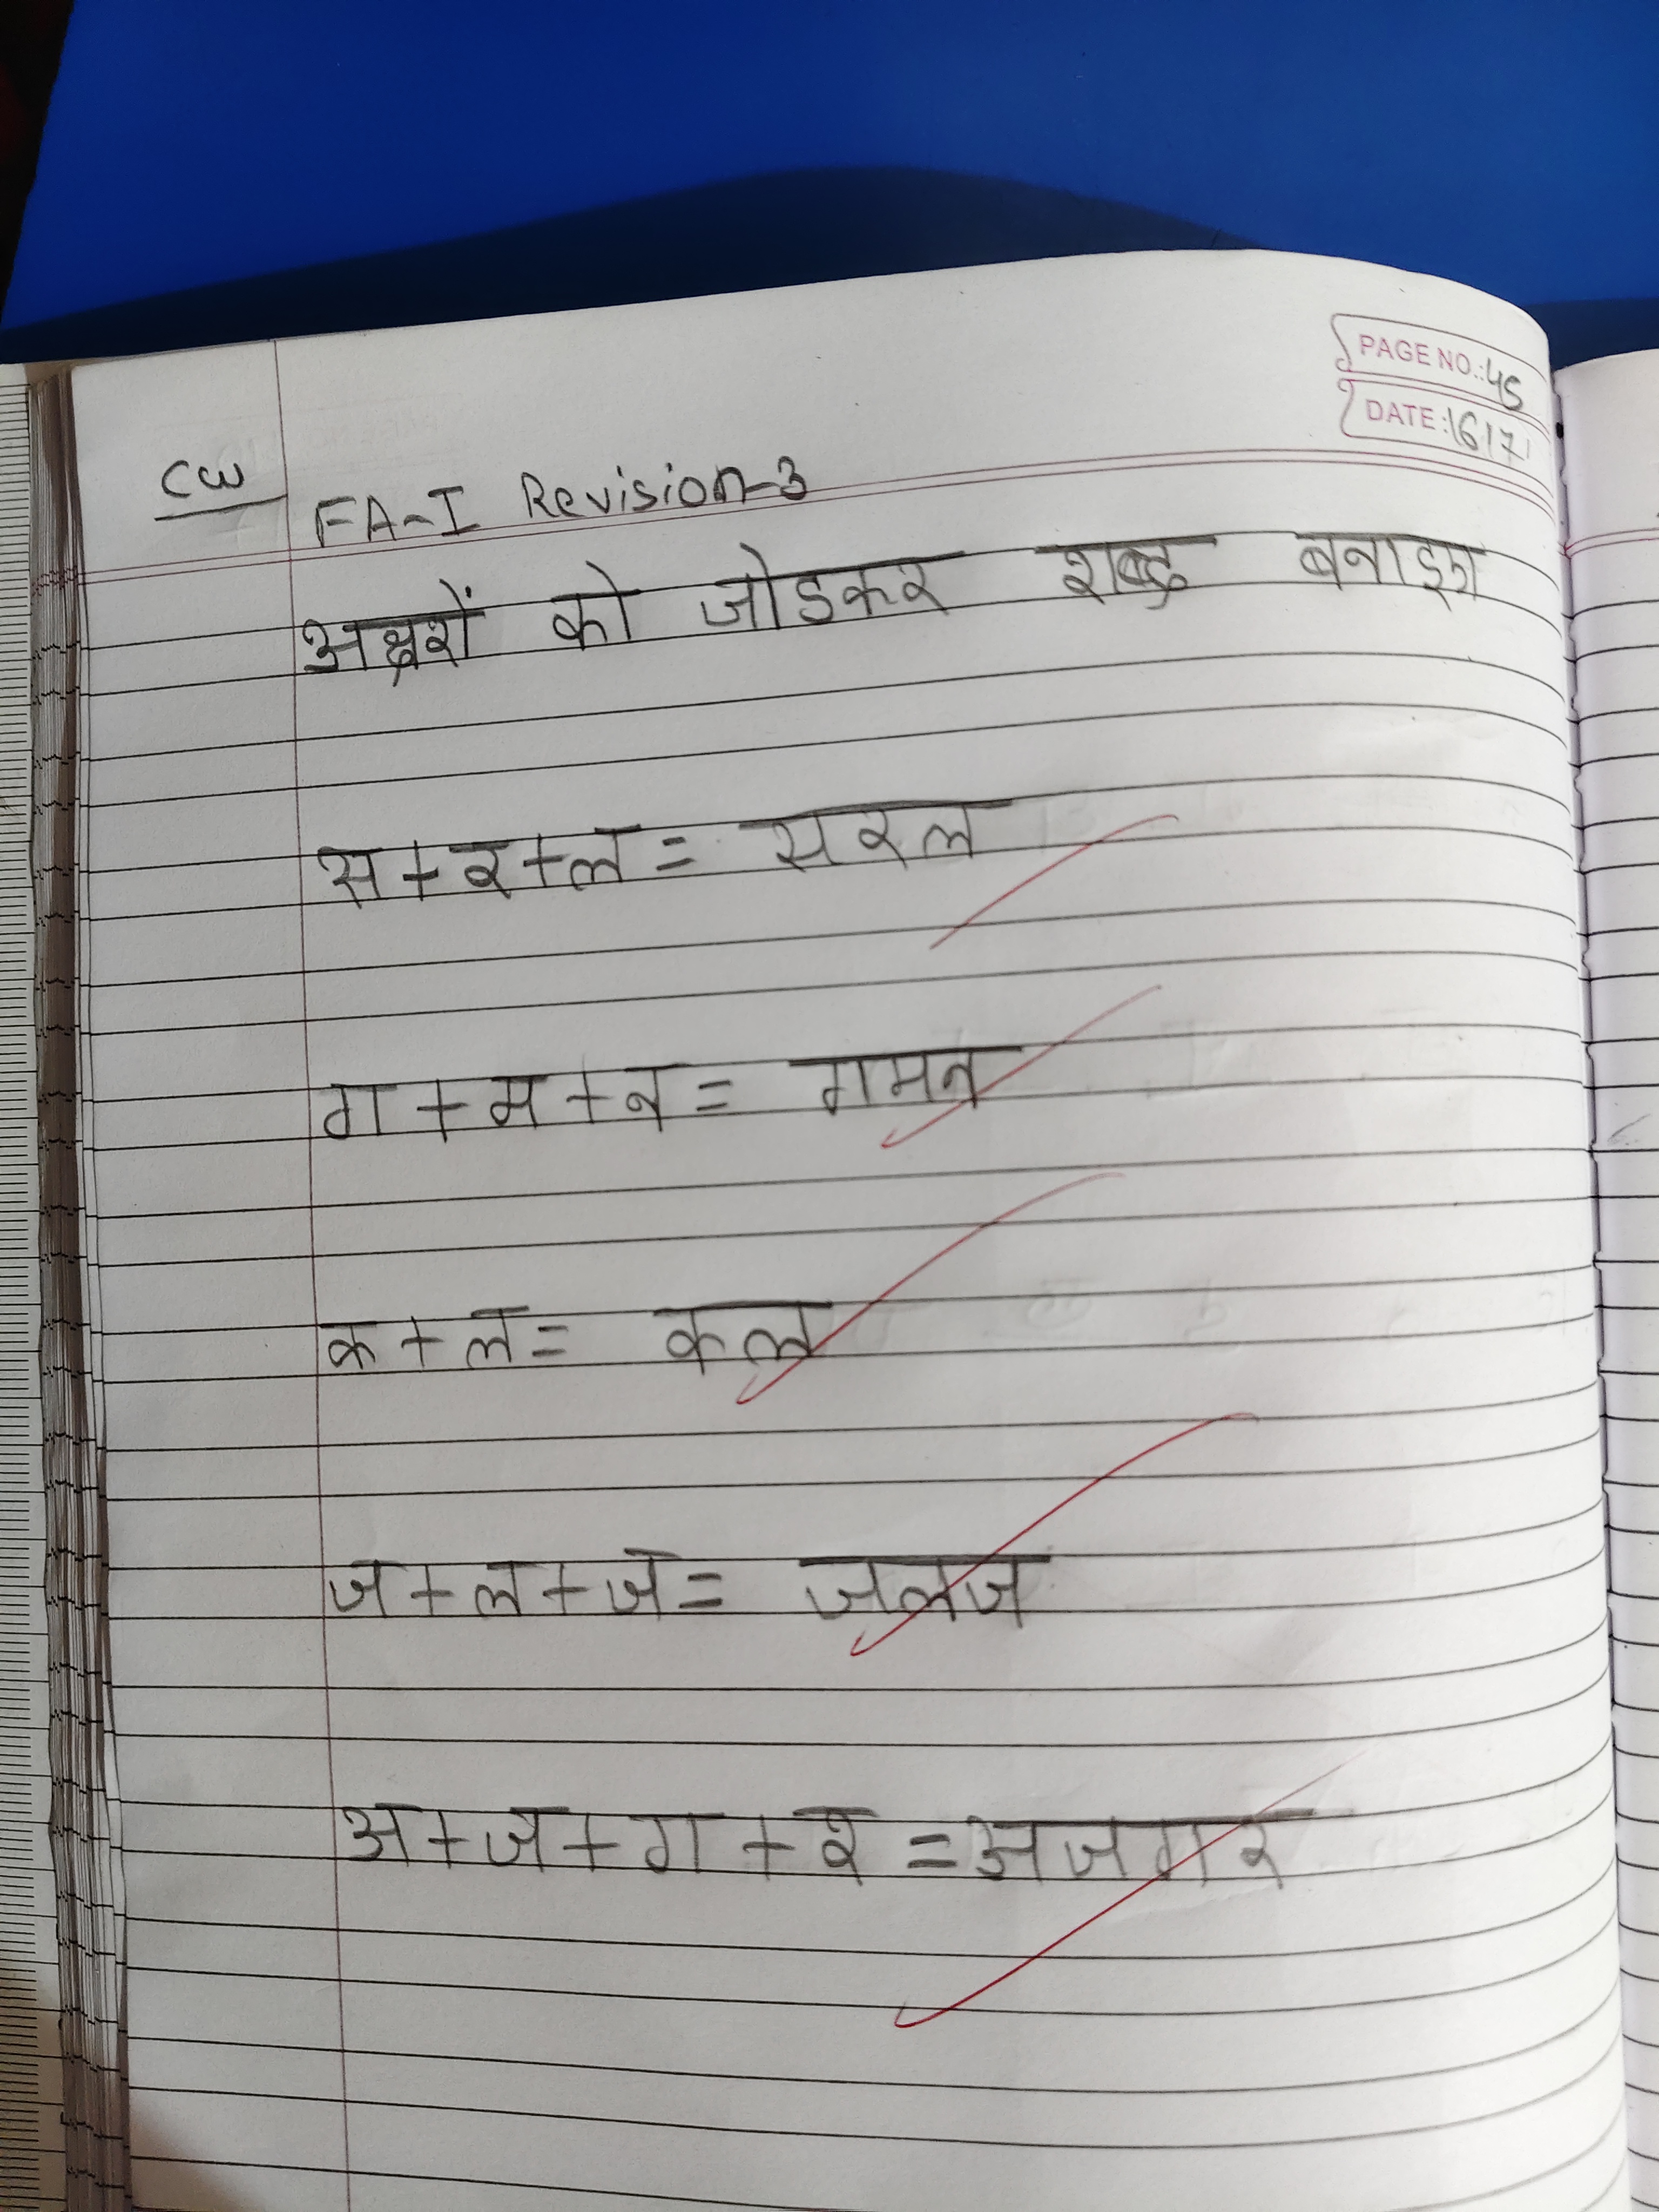 PAGE NO.: 45
DATE: 16171
CW
FA-I Revision-3
अक्षरों को जोडकर शब्द बनाइए
स+र+ल= सरल
ग+म+न= गमन
क+ल= कल
ज+ल+ज= जलज
अ+ज+ग+र=अजगर